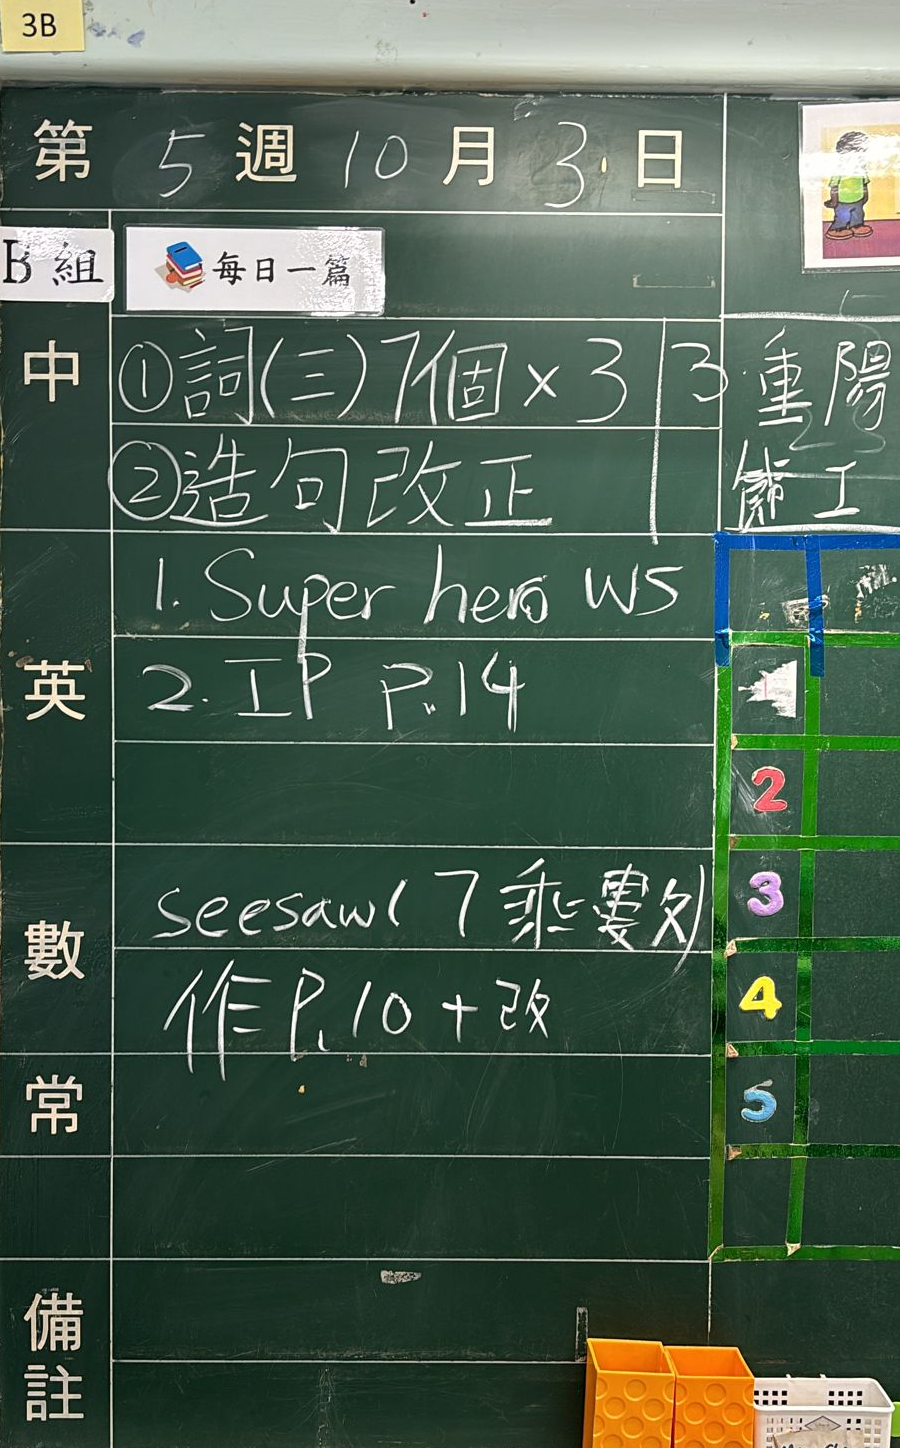 3B
第 5 週 10 月 3 日
B 組 每日一篇
中 ①詞(三)7個×3 3 重陽
②造句改正 節工
英 1. Super hero WS
2. IP P.14
2
數 seesaw( 7 乘數)
3
作 P.10 + 改
4
常
5
備註